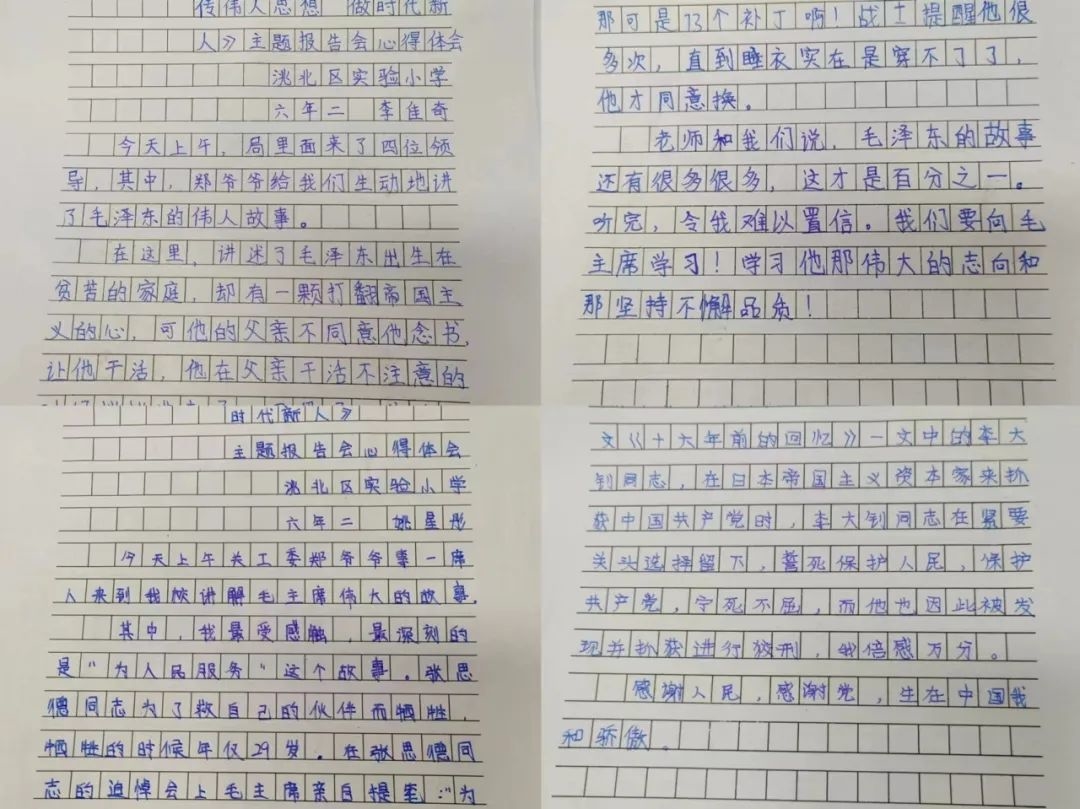 传伟人思想 做时代新
人》主题报告会心得体会
洮北区实验小学
六年二 李佳奇
今天上午，局里面来了四位领
导，其中，郑爷爷给我们生动地讲
了毛泽东的伟人故事。
在这里，讲述了毛泽东出生在
贫苦的家庭，却有一颗打翻帝国主
义的心，可他的父亲不同意他念书，
让他干活，他在父亲干活不注意的
那可是73个补丁啊！战士提醒他很
多次，直到睡衣实在是穿不了了，
他才同意换。
老师和我们说，毛泽东的故事
还有很多很多，这才是百分之一。
听完，令我难以置信。我们要向毛
主席学习！学习他那伟大的志向和
那坚持不懈品质！
时代新人》
主题报告会心得体会
洮北区实验小学
六年二 姚星彤
今天上午关工委郑爷爷事一席
人来到我校讲解毛主席伟大的故事，
其中，我最受感触，最深刻的
是“为人民服务”这个故事。张思
德同志为了救自己的伙伴而牺牲，
牺牲的时候年仅29岁。在张思德同
志的追悼会上毛主席亲自提笔：“为
文《十六年前的回忆》一文中的李大
钊同志，在日本帝国主义资本家来抓
获中国共产党时，李大钊同志在紧要
关头选择留下，誓死保护人民，保护
共产党，宁死不屈，而他也因此被发
现并抓获进行绞刑，我倍感万分。
感谢人民，感谢党，生在中国我
和骄傲。